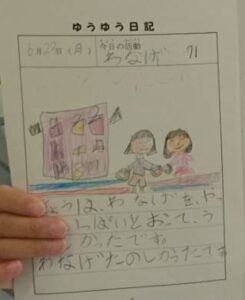 ゆうゆう日記
6月23日(月) 今日の活動 わなげ 71
きょうは、わなげを、やっ
いっぱいとおって、う
かったです。
わなげたのしかったです